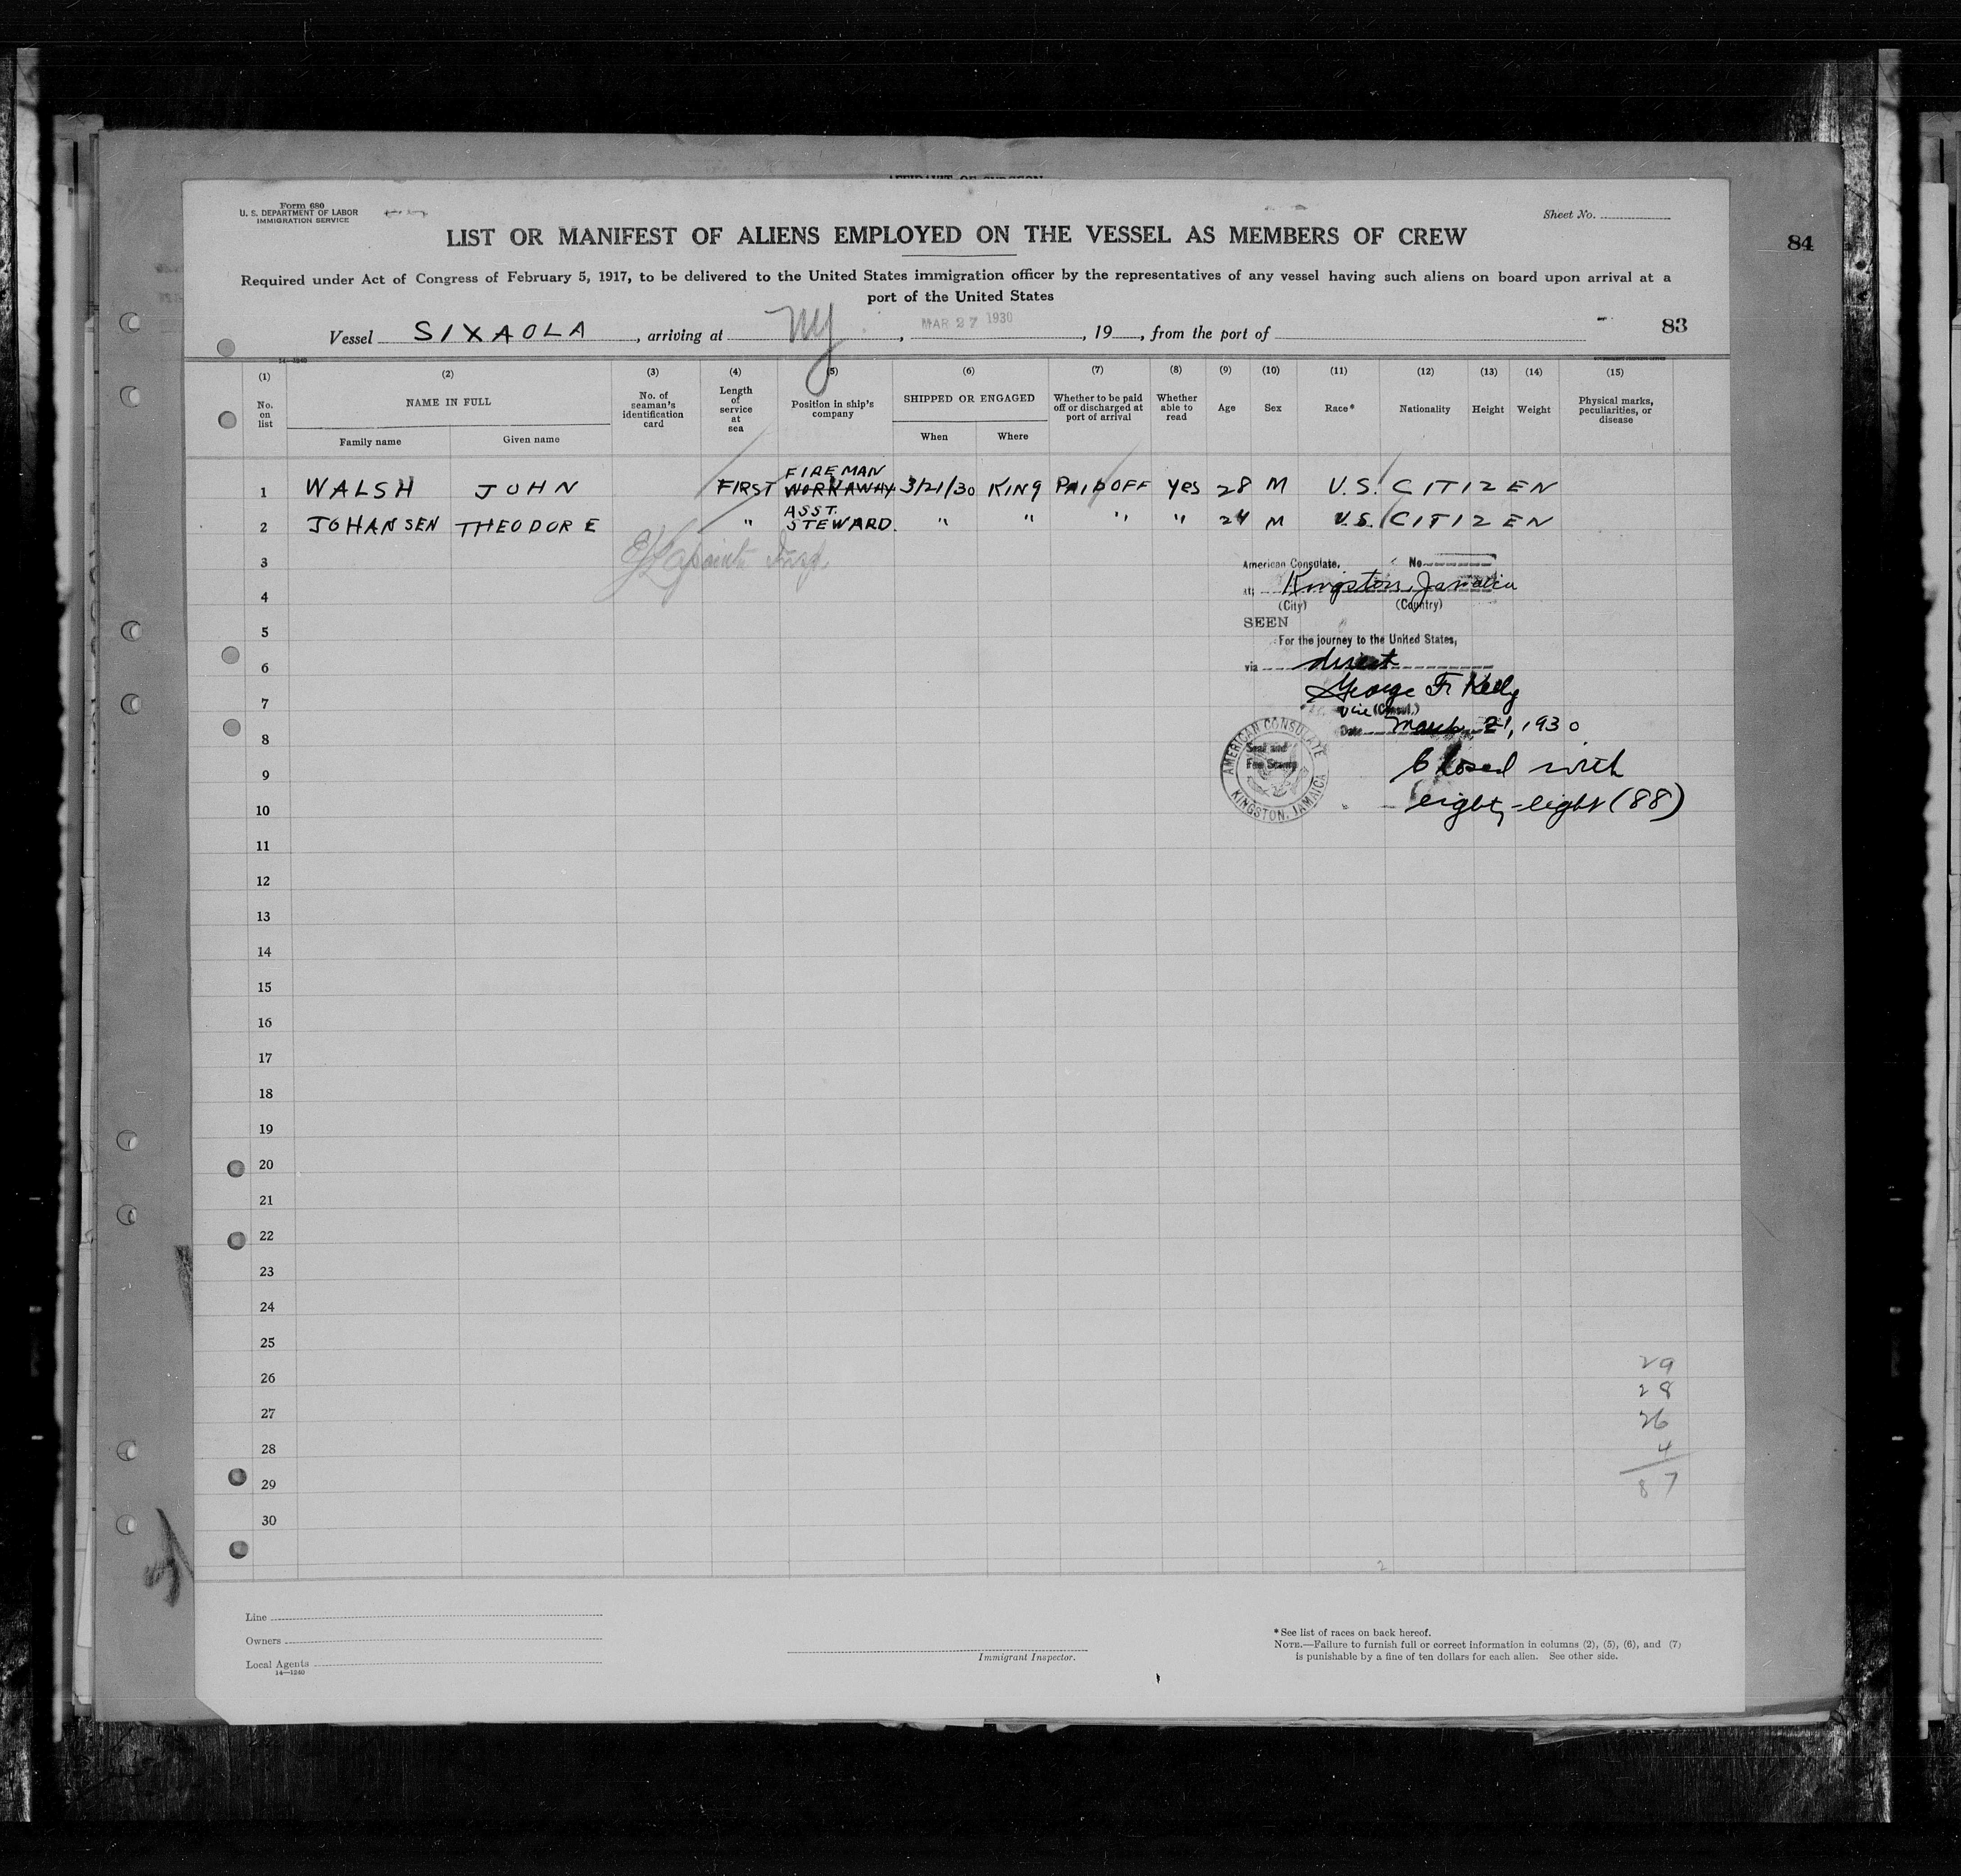 Form 680
U. S. DEPARTMENT OF LABOR
IMMIGRATION SERVICE
Sheet No.
LIST OR MANIFEST OF ALIENS EMPLOYED ON THE VESSEL AS MEMBERS OF CREW
84
Required under Act of Congress of February 5, 1917, to be delivered to the United States immigration officer by the representatives of any vessel having such aliens on board upon arrival at a
port of the United States
83
Vessel SIXAOLA, arriving at NY, MAR 27 1930, 19, from the port of
14—1240
(1) (2) (3) (4) (5) (6) (7) (8) (9) (10) (11) (12) (13) (14) (15)
No. on list
NAME IN FULL
Family name Given name
No. of seaman's identification card
Length of service at sea
Position in ship's company
SHIPPED OR ENGAGED
When Where
Whether to be paid off or discharged at port of arrival
Whether able to read
Age
Sex
Race*
Nationality
Height
Weight
Physical marks, peculiarities, or disease
FIREMAN
1 WALSH JOHN FIRST WORKAWAY 3/21/30 KING PAID OFF Yes 28 M U.S. CITIZEN
ASST.
2 JOHANSEN THEODORE " STEWARD. " " " " 24 M U.S. CITIZEN
3
4
5
6
7
8
9
10
11
12
13
14
15
16
17
18
19
20
21
22
23
24
25
26
27
28
29
30
American Consulate, No
at Kingston, Jamaica
(City) (Country)
SEEN
For the journey to the United States,
via direct
George F. Kelly
Vice (Consul.)
Date March 21, 1930
Seal and
Fee Stamp
AMERICAN CONSULATE
KINGSTON, JAMAICA
Closed with
eighty-eight (88)
29
28
26
4
87
2
Line
Owners
Local Agents
14—1240
Immigrant Inspector.
* See list of races on back hereof.
NOTE.—Failure to furnish full or correct information in columns (2), (5), (6), and (7)
is punishable by a fine of ten dollars for each alien. See other side.